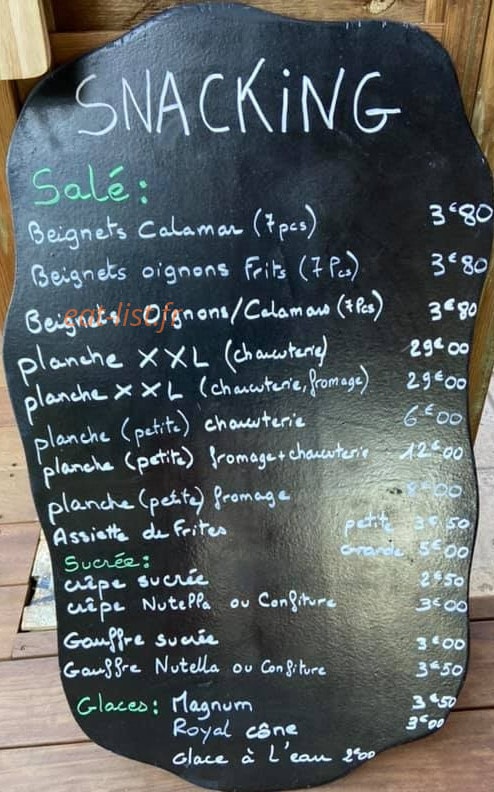 SNACKiNG
Salé:
Beignets Calamar (7 pcs) 3€80
Beignets oignons Frits (7 Pcs) 3€80
Beignets oignons/Calamars (7 Pcs) 3€80
eat-list.fr
planche XXL (charcuterie) 29€00
planche XXL (charcuterie, fromage) 29€00
planche (petite) charcuterie 6€00
planche (petite) fromage+charcuterie 12€00
planche (petite) fromage 8€00
Assiette de Frites petite 3€50
Grande 5€00
Sucrée:
crêpe sucrée 2€50
crêpe Nutella ou Confiture 3€00
Gauffre sucrée 3€00
Gauffre Nutella ou Confiture 3€50
Glaces: Magnum 3€50
Royal cône 3€00
Glace à L'eau 2€00